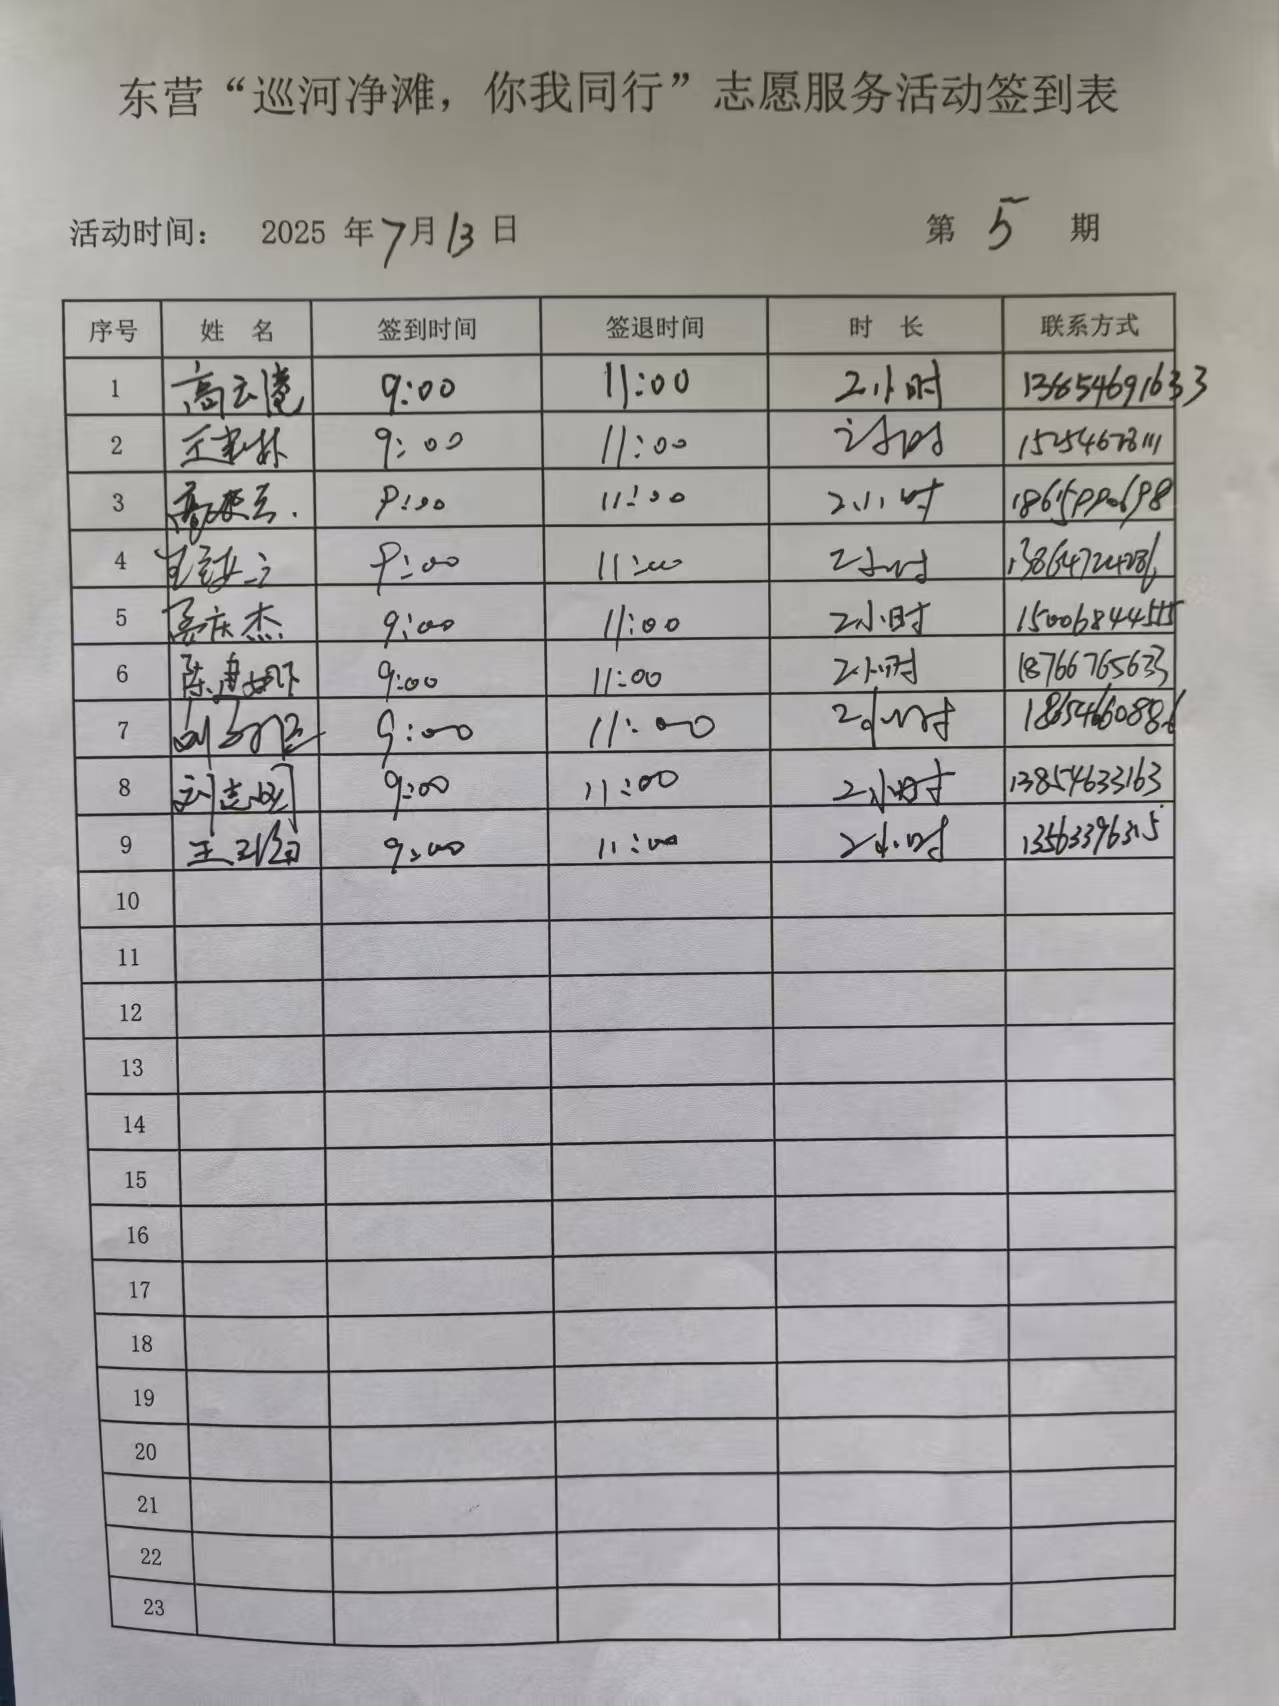 东营“巡河净滩，你我同行”志愿服务活动签到表
活动时间： 2025 年 7 月 13 日 第 5 期
序号 姓 名 签到时间 签退时间 时 长 联系方式
1 高云 9:00 11:00 2小时 13654691633
2 王 9:00 11:00 2小时
3 高 9:00 11:00 2小时
4 9:00 11:00 2小时
5 庆杰 9:00 11:00 2小时
6 陈 9:00 11:00 2小时 18766765633
7 9:00 11:00 2小时 18654660886
8 刘志 9:00 11:00 2小时 13854633163
9 王 9:00 11:00 2小时 13563396315
10
11
12
13
14
15
16
17
18
19
20
21
22
23